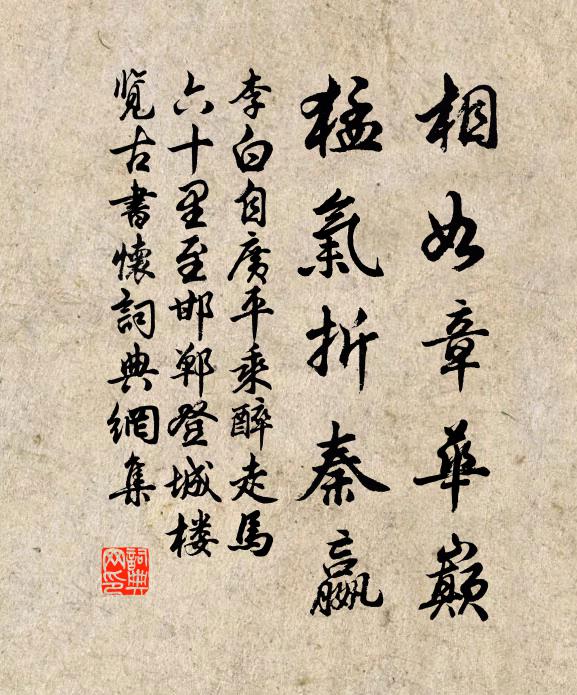 相如章華巔
猛氣折秦嬴
李白自廣平乘醉走馬
六十里至邯鄲登城楼
覽古書懷詞典網集
詞典网印